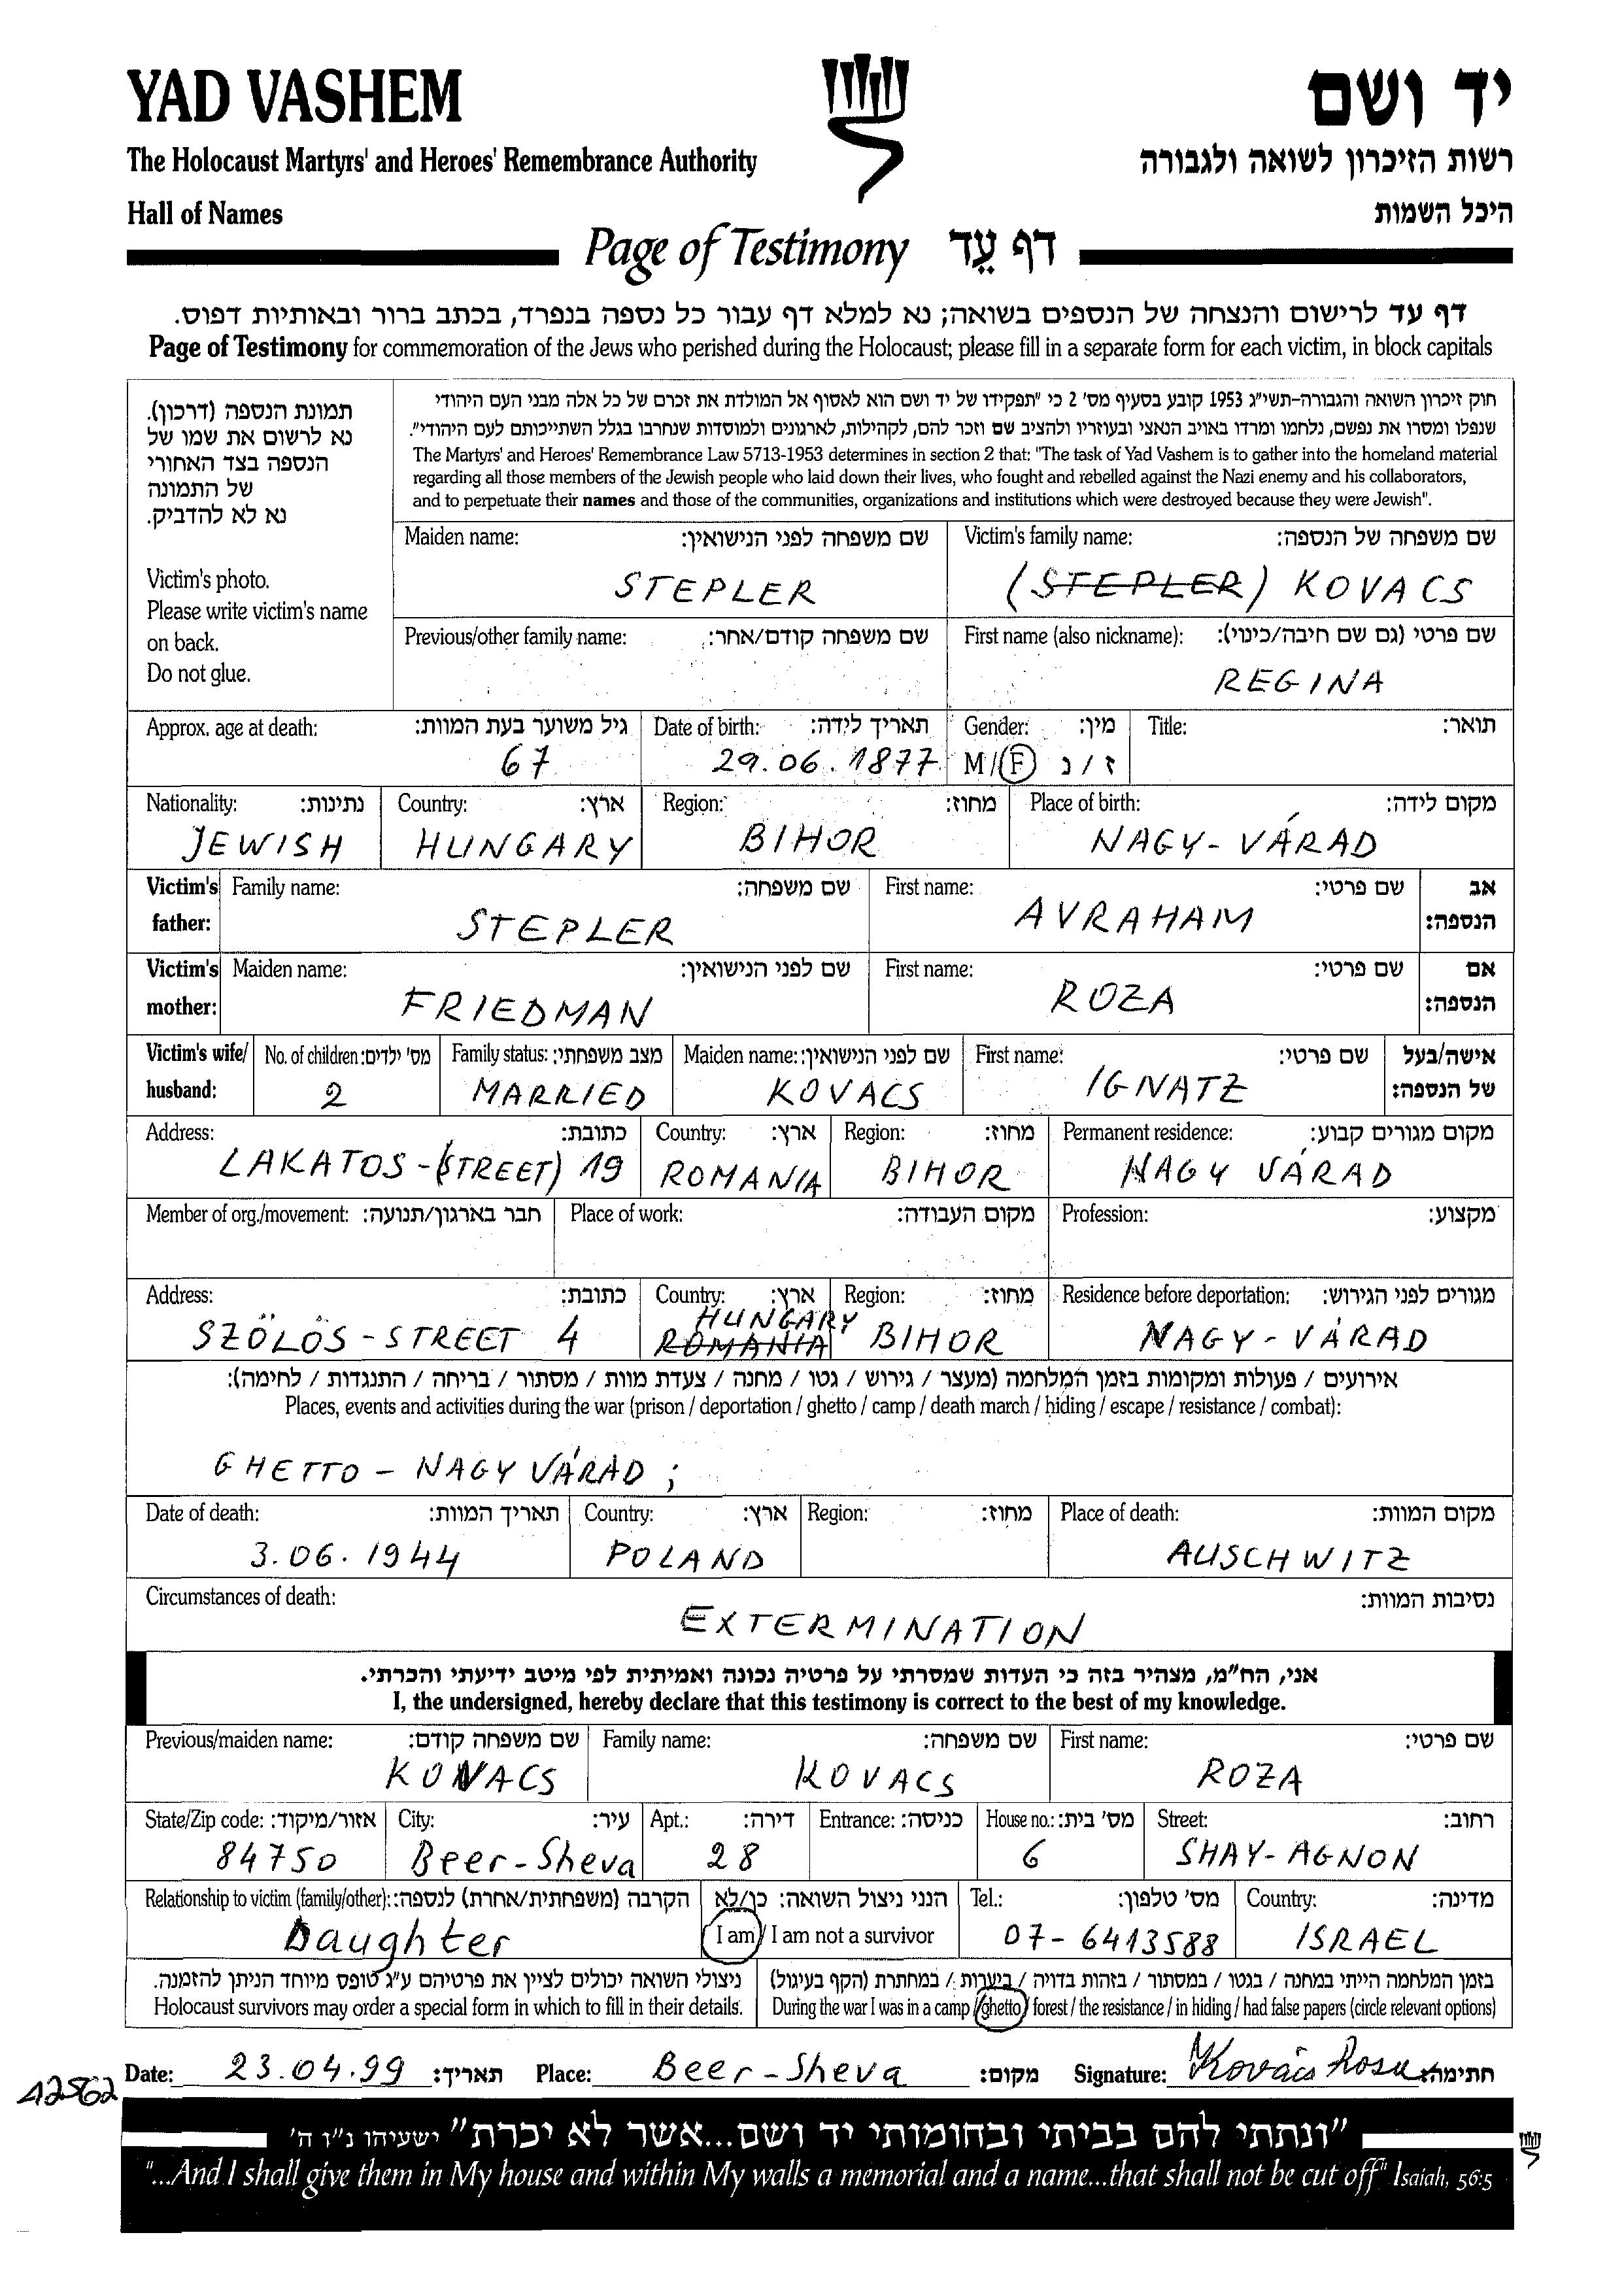 YAD VASHEM
יד ושם
The Holocaust Martyrs' and Heroes' Remembrance Authority
רשות הזיכרון לשואה ולגבורה
Hall of Names
היכל השמות
Page of Testimony דף עֵד
דף עד לרישום והנצחה של הנספים בשואה; נא למלא דף עבור כל נספה בנפרד, בכתב ברור ובאותיות דפוס.
Page of Testimony for commemoration of the Jews who perished during the Holocaust; please fill in a separate form for each victim, in block capitals
תמונת הנספה (דרכון).
נא לרשום את שמו של
הנספה בצד האחורי
של התמונה
נא לא להדביק.
Victim's photo.
Please write victim's name
on back.
Do not glue.
חוק זיכרון השואה והגבורה-תשי"ג 1953 קובע בסעיף מס' 2 כי "תפקידו של יד ושם הוא לאסוף אל המולדת את זכרם של כל אלה מבני העם היהודי
שנפלו ומסרו את נפשם, נלחמו ומרדו באויב הנאצי ובעוזריו ולהציב שם וזכר להם, לקהילות, לארגונים ולמוסדות שנחרבו בגלל השתייכותם לעם היהודי".
The Martyrs' and Heroes' Remembrance Law 5713-1953 determines in section 2 that: "The task of Yad Vashem is to gather into the homeland material
regarding all those members of the Jewish people who laid down their lives, who fought and rebelled against the Nazi enemy and his collaborators,
and to perpetuate their names and those of the communities, organizations and institutions which were destroyed because they were Jewish".
Maiden name: שם משפחה לפני הנישואין: Victim's family name: שם משפחה של הנספה:
STEPLER (STEPLER) KOVACS
Previous/other family name: שם משפחה קודם/אחר: First name (also nickname): שם פרטי (גם שם חיבה/כינוי):
REGINA
Approx. age at death: גיל משוער בעת המוות: Date of birth: תאריך לידה: Gender: מין: Title: תואר:
67 29.06.1877 M/F ז/נ
Nationality: נתינות: Country: ארץ: Region: מחוז: Place of birth: מקום לידה:
JEWISH HUNGARY BIHOR NAGY-VÁRAD
Victim's Family name: שם משפחה: First name: שם פרטי: אב
father: STEPLER AVRAHAM הנספה:
Victim's Maiden name: שם לפני הנישואין: First name: שם פרטי: אם
mother: FRIEDMAN ROZA הנספה:
Victim's wife/ No. of children: מס' ילדים: Family status: מצב משפחתי: Maiden name: שם לפני הנישואין: First name: שם פרטי: אישה/בעל
husband: 2 MARRIED KOVACS IGNATZ של הנספה:
Address: כתובת: Country: ארץ: Region: מחוז: Permanent residence: מקום מגורים קבוע:
LAKATOS-(STREET) 19 ROMANIA BIHOR NAGY VÁRAD
Member of org./movement: חבר בארגון/תנועה: Place of work: מקום העבודה: Profession: מקצוע:
Address: כתובת: Country: ארץ: Region: מחוז: Residence before deportation: מגורים לפני הגירוש:
HUNGARY
SZÖLÖS-STREET 4 ROMANIA BIHOR NAGY-VÁRAD
אירועים / פעולות ומקומות בזמן המלחמה (מעצר / גירוש / גטו / מחנה / צעדת מוות / מסתור / בריחה / התנגדות / לחימה):
Places, events and activities during the war (prison / deportation / ghetto / camp / death march / hiding / escape / resistance / combat):
GHETTO - NAGY VÁRAD ;
Date of death: תאריך המוות: Country: ארץ: Region: מחוז: Place of death: מקום המוות:
3.06.1944 POLAND AUSCHWITZ
Circumstances of death: נסיבות המוות:
EXTERMINATION
אני, הח"מ, מצהיר בזה כי העדות שמסרתי על פרטיה נכונה ואמיתית לפי מיטב ידיעתי והכרתי.
I, the undersigned, hereby declare that this testimony is correct to the best of my knowledge.
Previous/maiden name: שם משפחה קודם: Family name: שם משפחה: First name: שם פרטי:
KOVACS KOVACS ROZA
State/Zip code: אזור/מיקוד: City: עיר: Apt.: דירה: Entrance: כניסה: House no.: מס' בית: Street: רחוב:
84750 Beer-Sheva 28 6 SHAY-AGNON
Relationship to victim (family/other): הקרבה (משפחתית/אחרת) לנספה: הנני ניצול השואה: כן/לא Tel.: מס' טלפון: Country: מדינה:
Daughter I am / I am not a survivor 07-6413588 ISRAEL
ניצולי השואה יכולים לציין את פרטיהם ע"ג טופס מיוחד הניתן להזמנה. בזמן המלחמה הייתי במחנה / בגטו / במסתור / בזהות בדויה / ביערות / במחתרת (הקף בעיגול)
Holocaust survivors may order a special form in which to fill in their details. During the war I was in a camp / ghetto / forest / the resistance / in hiding / had false papers (circle relevant options)
Date: 23.04.99 תאריך: Place: Beer-Sheva מקום: Signature: Kovács Rosa חתימה:
42562
"ונתתי להם בביתי ובחומותי יד ושם...אשר לא יכרת" ישעיהו נ"ו ה'
"...And I shall give them in My house and within My walls a memorial and a name...that shall not be cut off" Isaiah, 56:5